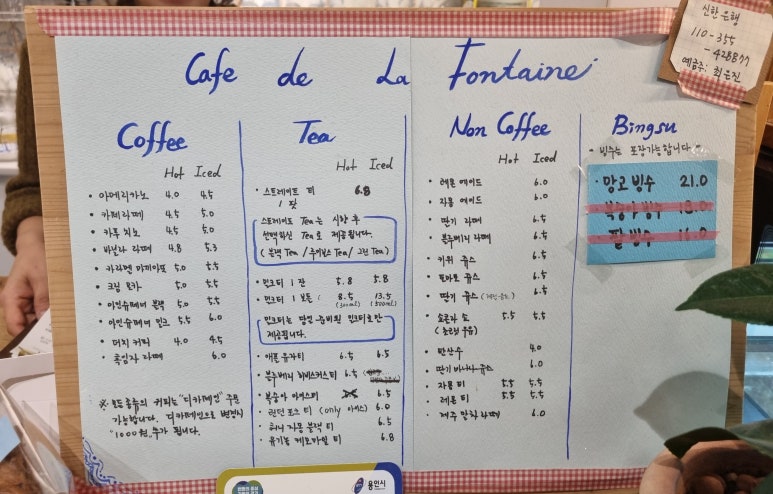 신한은행
110-355
-428877
예금주: 최은진
Cafe de La Fontaine
Coffee
Hot Iced
• 아메리카노 4.0 4.5
• 카페라떼 4.5 5.0
• 카푸치노 4.5 5.0
• 바닐라 라떼 4.8 5.3
• 카라멜 마끼아또 5.0 5.5
• 크림 모카 5.0 5.5
• 아인슈페너 블랙 5.0 5.5
• 아인슈페너 밀크 5.5 6.0
• 더치 커피 4.0 4.5
• 흑임자 라떼 6.0
※ 모든 종류의 커피는 "디카페인" 주문
가능합니다. 디카페인으로 변경시
"1000원" 추가 됩니다.
Tea
Hot Iced
• 스트레이트 티 6.8
1 잔
스트레이트 Tea는 시향 후
선택하신 Tea로 제공됩니다.
(블랙 Tea / 루이보스 Tea / 그린 Tea)
• 밀크티 1 잔 5.8 5.8
• 밀크티 1 보틀 8.5 13.5
(300ml) (500ml)
밀크티는 당일 준비된 밀크티로만
제공됩니다.
• 애플 유자티 6.5 6.5
• 블루베리 히비스커스티 6.5
• 복숭아 아이스티 6.5
• 런던 포그 티 (only 아이스) 6.0
• 허니 자몽 블랙티 6.5
• 유기농 캐모마일 티 6.8
Non Coffee
Hot Iced
• 레몬 에이드 6.0
• 자몽 에이드 6.0
• 딸기 라떼 6.5
• 블루베리 라떼 6.5
• 키위 쥬스 6.5
• 토마토 쥬스 6.5
• 딸기 쥬스 6.5
• 소콜라 쇼 5.5 5.5
(초코렛 우유)
• 탄산수 4.0
• 딸기 바나나 쥬스 6.0
• 자몽 티 5.5 5.5
• 레몬 티 5.5 5.5
• 제주 말차 라떼 6.0
Bingsu
• 빙수는 포장가능합니다
• 망고 빙수 21.0
복숭아 빙수 18.0
팥 빙수 16.0
용인시